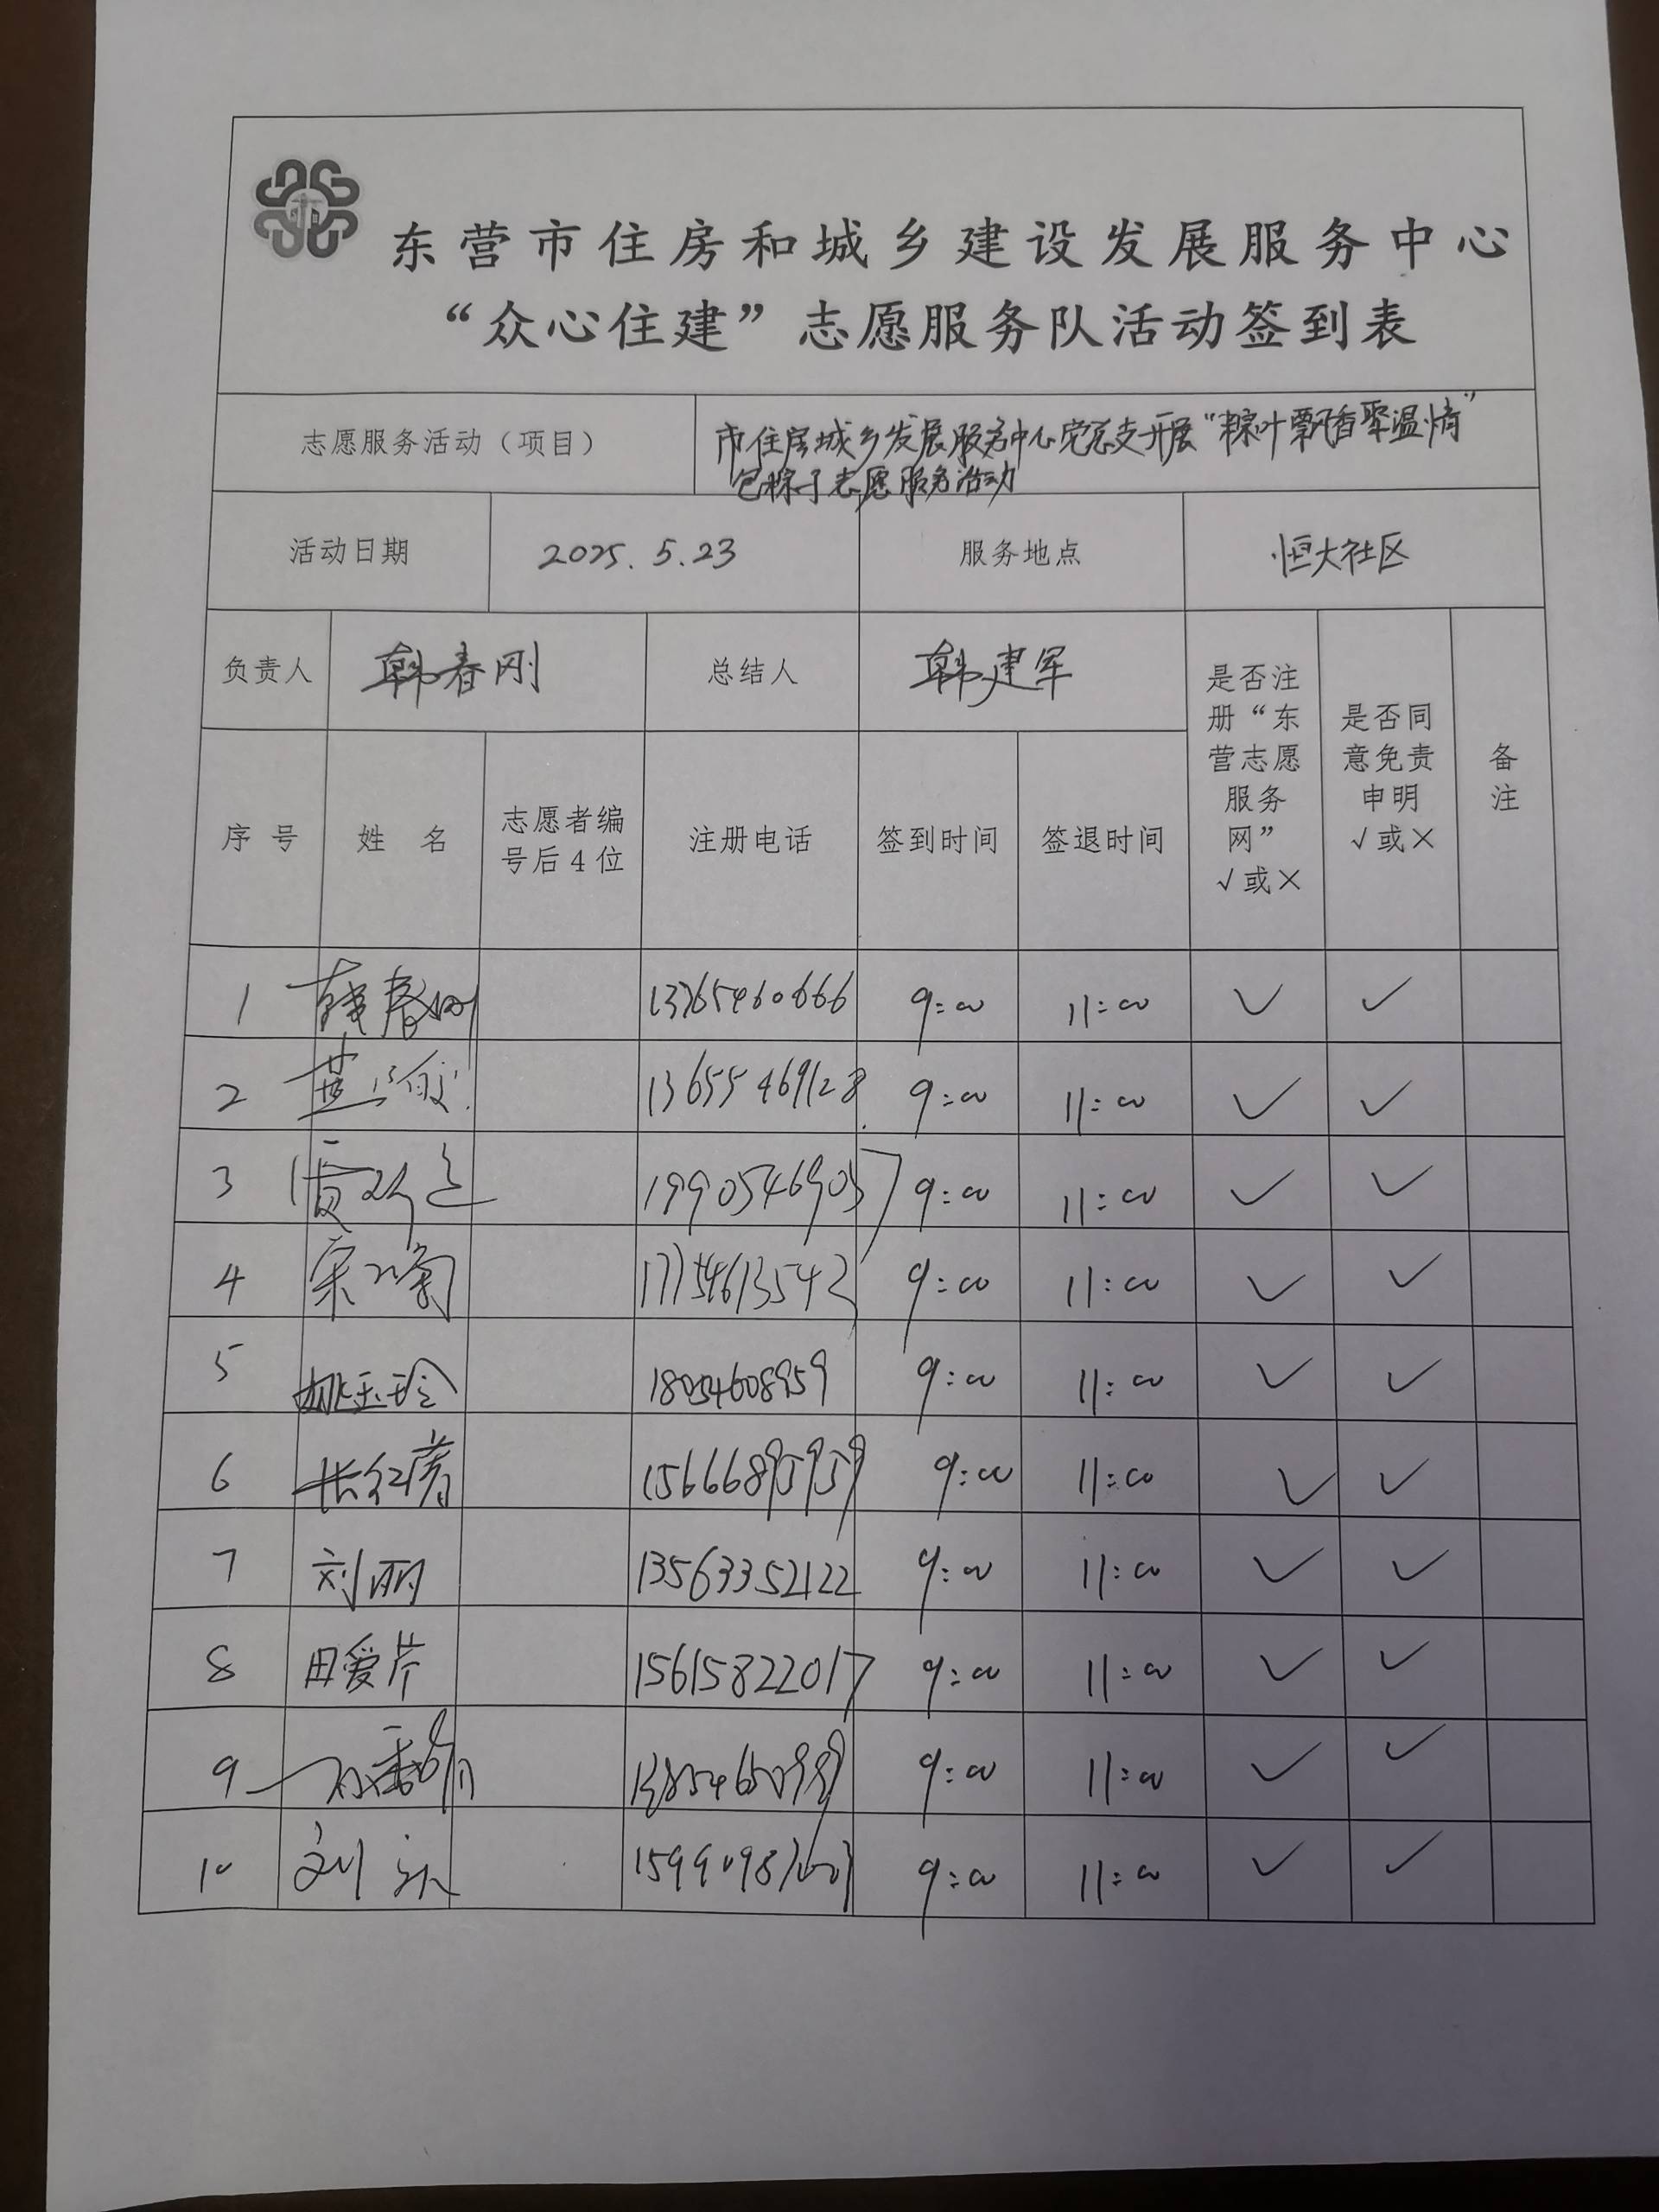 东营市住房和城乡建设发展服务中心
“众心住建”志愿服务队活动签到表
志愿服务活动（项目） 市住房城乡发展服务中心党总支开展“粽叶飘香聚温情”
包粽子志愿服务活动
活动日期 2025.5.23 服务地点 恒大社区
负责人 韩春刚 总结人 韩建军
是否注册“东营志愿服务网”√或×
是否同意免责申明√或×
备注
序号 姓名 志愿者编号后4位 注册电话 签到时间 签退时间
1 韩春刚 9:00 11:00 ✓ ✓
2 13655469128 9:00 11:00 ✓ ✓
3 19905469057 9:00 11:00 ✓ ✓
4 17754613543 9:00 11:00 ✓ ✓
5 姚玉玲 18054608959 9:00 11:00 ✓ ✓
6 15666895959 9:00 11:00 ✓ ✓
7 刘丽 13563352122 9:00 11:00 ✓ ✓
8 田爱芹 15615822017 9:00 11:00 ✓ ✓
9 9:00 11:00 ✓ ✓
10 9:00 11:00 ✓ ✓